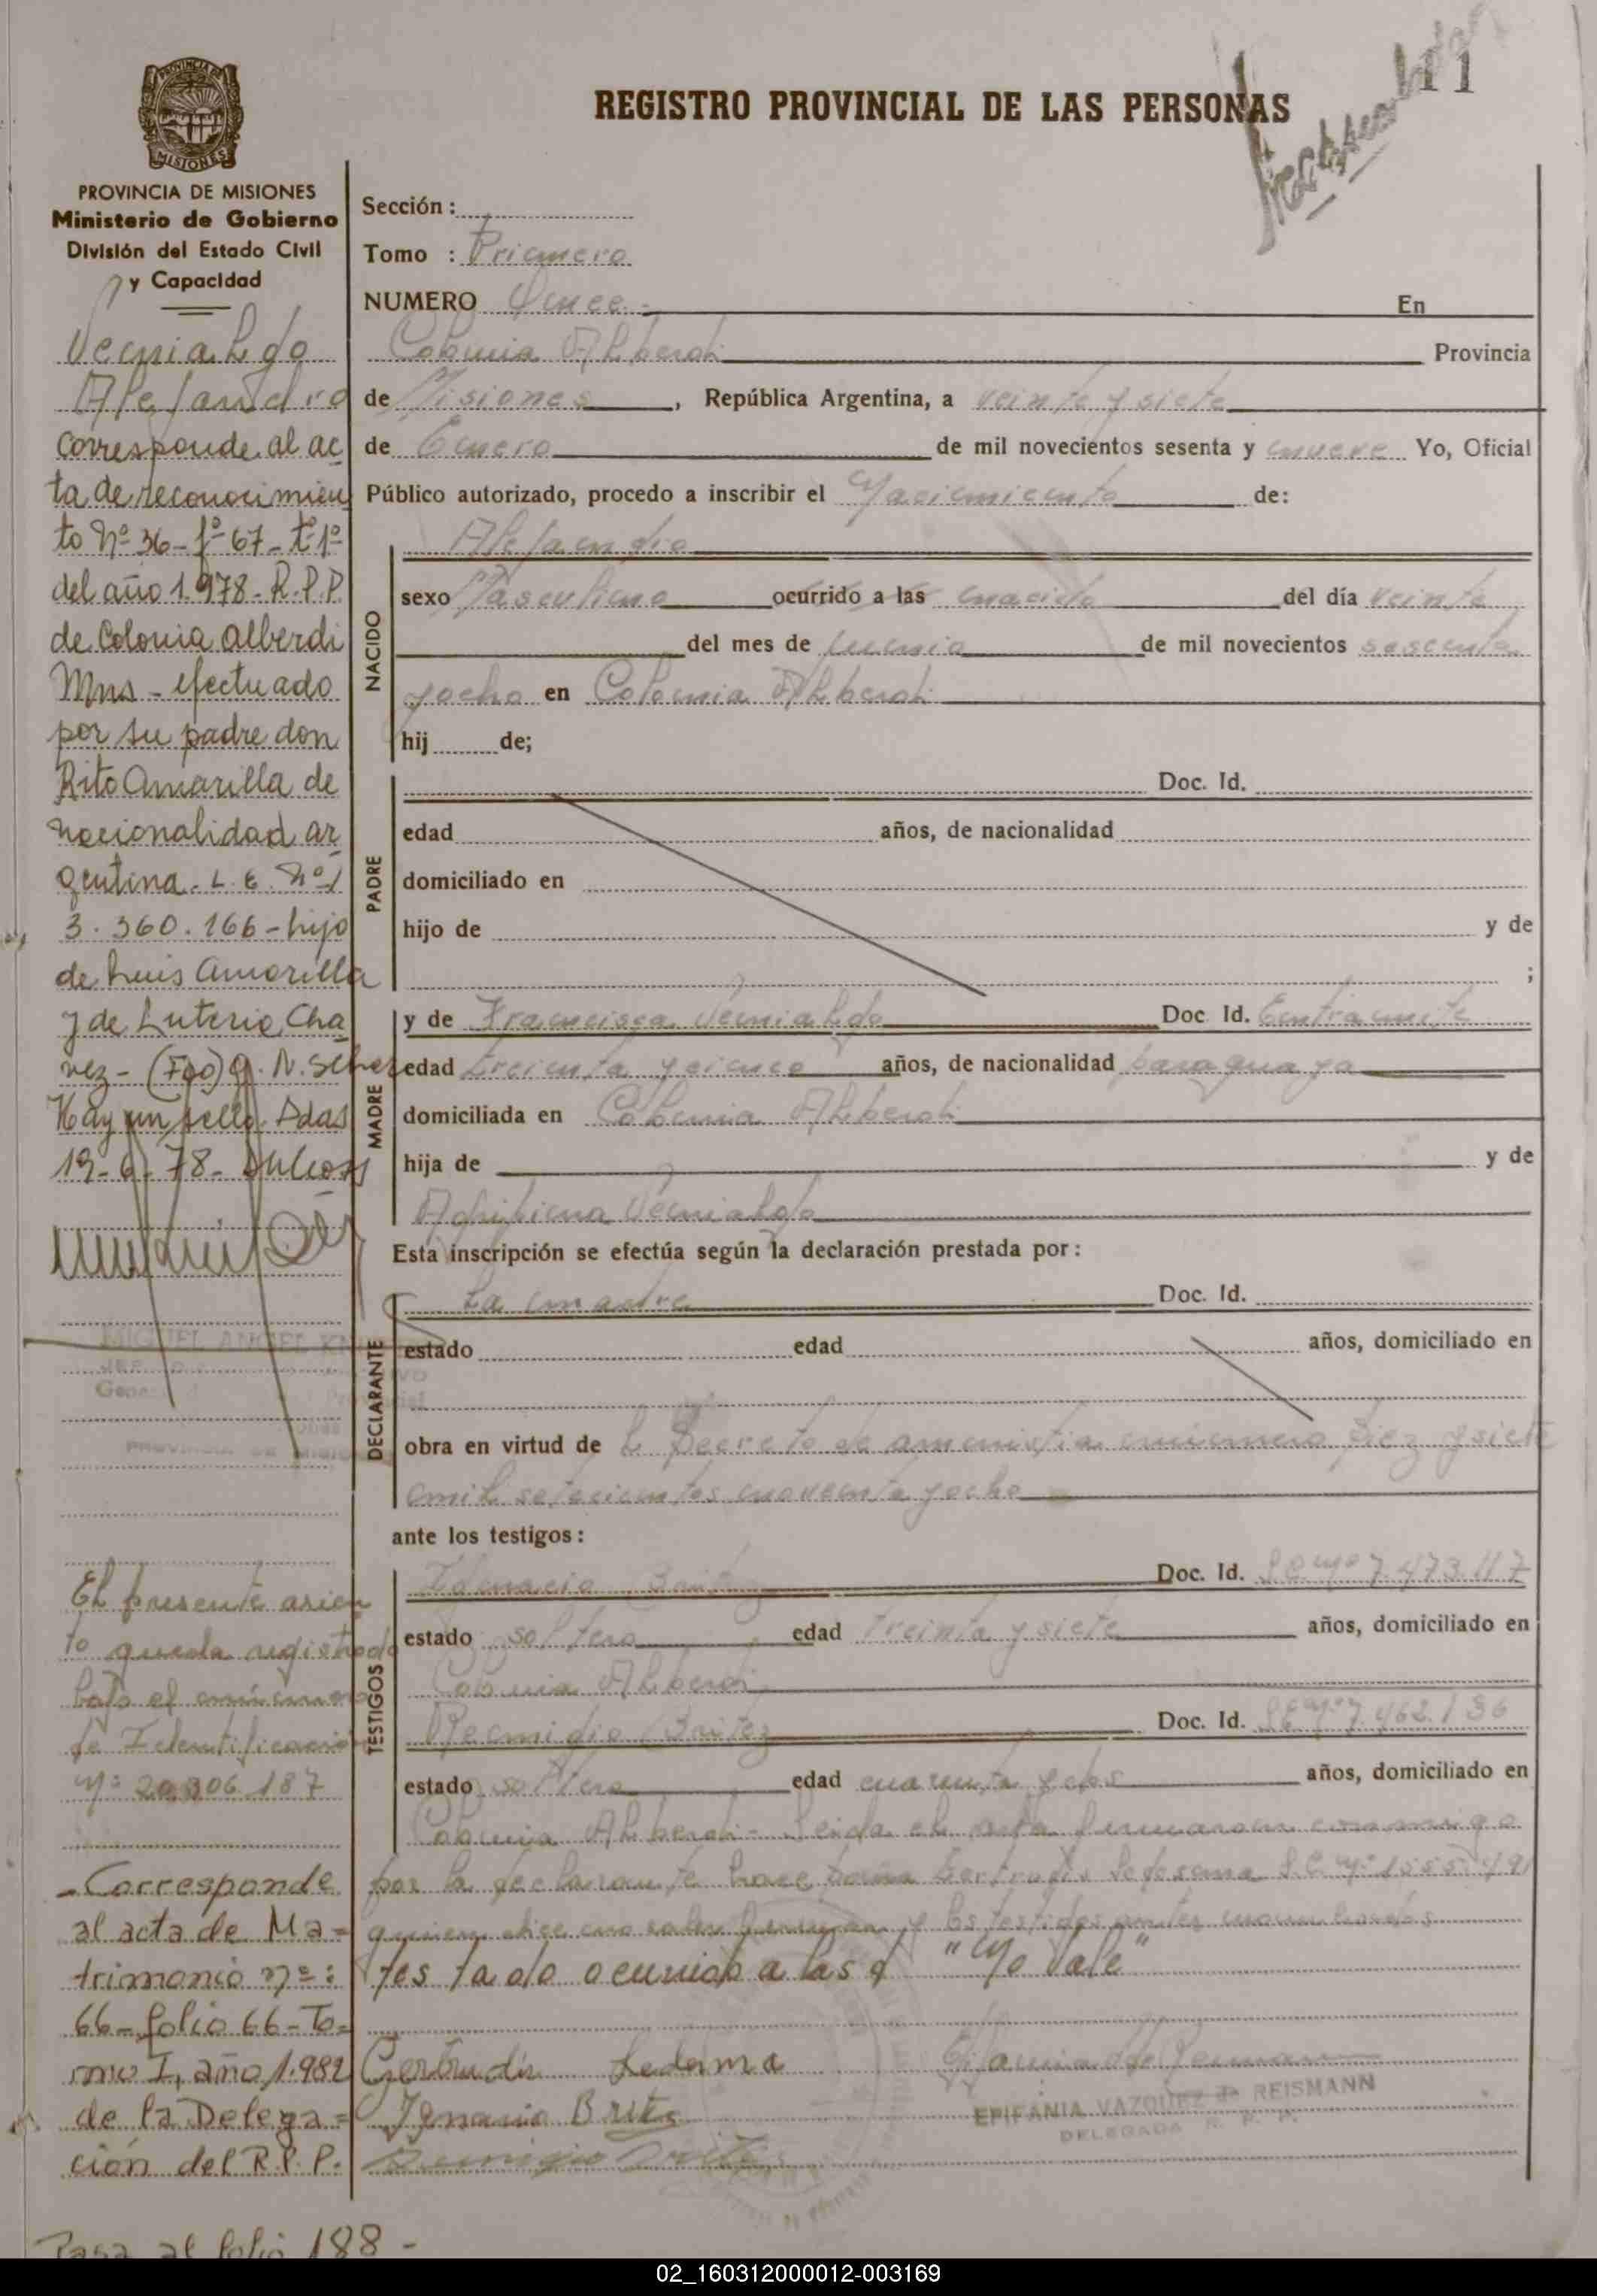 11
REGISTRO PROVINCIAL DE LAS PERSONAS
PROVINCIA DE
MISIONES
PROVINCIA DE MISIONES
Ministerio de Gobierno
División del Estado Civil
y Capacidad
Vernialdo
Alejandro
corresponde al ac
ta de reconocimien
to Nº 36 - fº 67 - tº 1º
del año 1.978 - R.P.P.
de Colonia Alberdi
Mns - efectuado
por su padre don
Rito Amarilla de
nacionalidad ar
gentina. L.E. Nº
3.360.166 - hijo
de Luis Amarilla
y de Luteria Cha
vez - (Fdo) G. N.
Hay un sello Pdas
19-6-78-
MIGUEL ANGEL
El presente asien
to queda registrado
bajo el número
de Identificación
Nº 20.306.187
- Corresponde
al acta de Ma=
trimonio nº:
66 - folio 66 - To=
mo I, año 1.982
de la Delega=
ción del R.P.P.
Pasa al folio 188 -
Sección :
Tomo : Primero
NUMERO Once - En
Colonia Alberdi Provincia
de Misiones , República Argentina, a veinte y siete
de Enero de mil novecientos sesenta y nueve Yo, Oficial
Público autorizado, procedo a inscribir el Nacimiento de:
NACIDO
Alejandro
sexo Masculino ocurrido a las nacido del día veinte
del mes de junio de mil novecientos sesenta
yocho en Colonia Alberdi
hij de;
PADRE
Doc. Id.
edad años, de nacionalidad
domiciliado en
hijo de y de
;
MADRE
y de Francisca Vernialdo Doc. Id. Entramite
edad treinta ycinco años, de nacionalidad paraguaya
domiciliada en Colonia Alberdi
hija de y de
Agripina Vernialdo
Esta inscripción se efectúa según la declaración prestada por :
DECLARANTE
La madre Doc. Id.
estado edad años, domiciliado en
obra en virtud de l Decreto de amnistia número diez ysiete
mil setecientos noventa yocho
ante los testigos :
TESTIGOS
Ignacio Britez Doc. Id. L.E. Nº 7.473.117
estado soltero edad treinta y siete años, domiciliado en
Colonia Alberdi
Remigio Britez Doc. Id. L.E. Nº 7.462.136
estado soltero edad cuarenta ydos años, domiciliado en
Colonia Alberdi - Leida el acta firmaron conmigo
por la declarante hace doña Gertrudis Ledesma L.C. Nº
quien dice no saber firmar y los testigos antes nombrados
testado ocurrido a las "No Vale"
Gertrudis Ledesma
Ignacio Brites
EPIFANIA VAZQUEZ DE REISMANN
DELEGADA R. P. P.
02_160312000012-003169